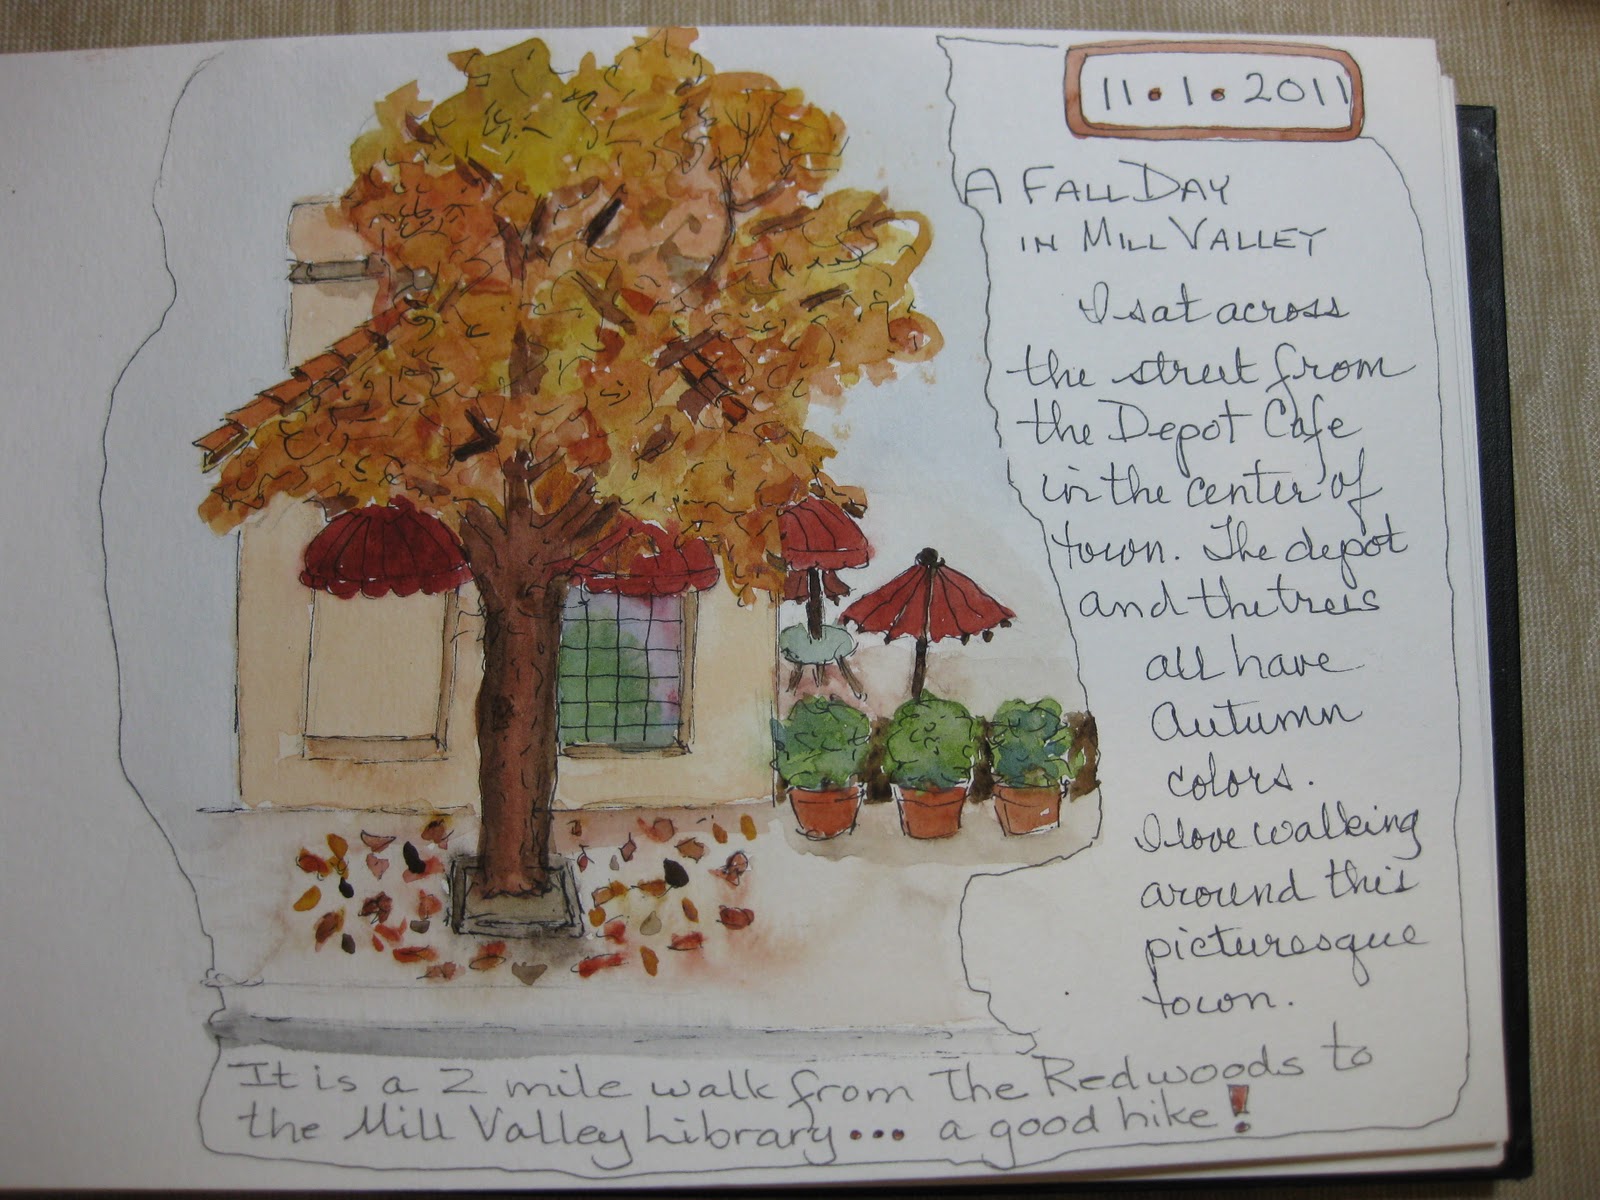 11•1•2011
A FALL DAY
IN MILL VALLEY
I sat across
the street from
the Depot Cafe
in the center of
town. The depot
and the trees
all have
Autumn
colors.
I love walking
around this
picturesque
town.
It is a 2 mile walk from The Redwoods to
the Mill Valley Library... a good hike!